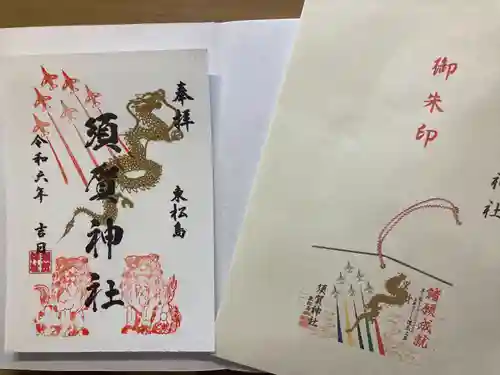 奉拝
東松島
須賀神社
令和六年 吉日
御朱印
神社
諸願成就
須賀神社